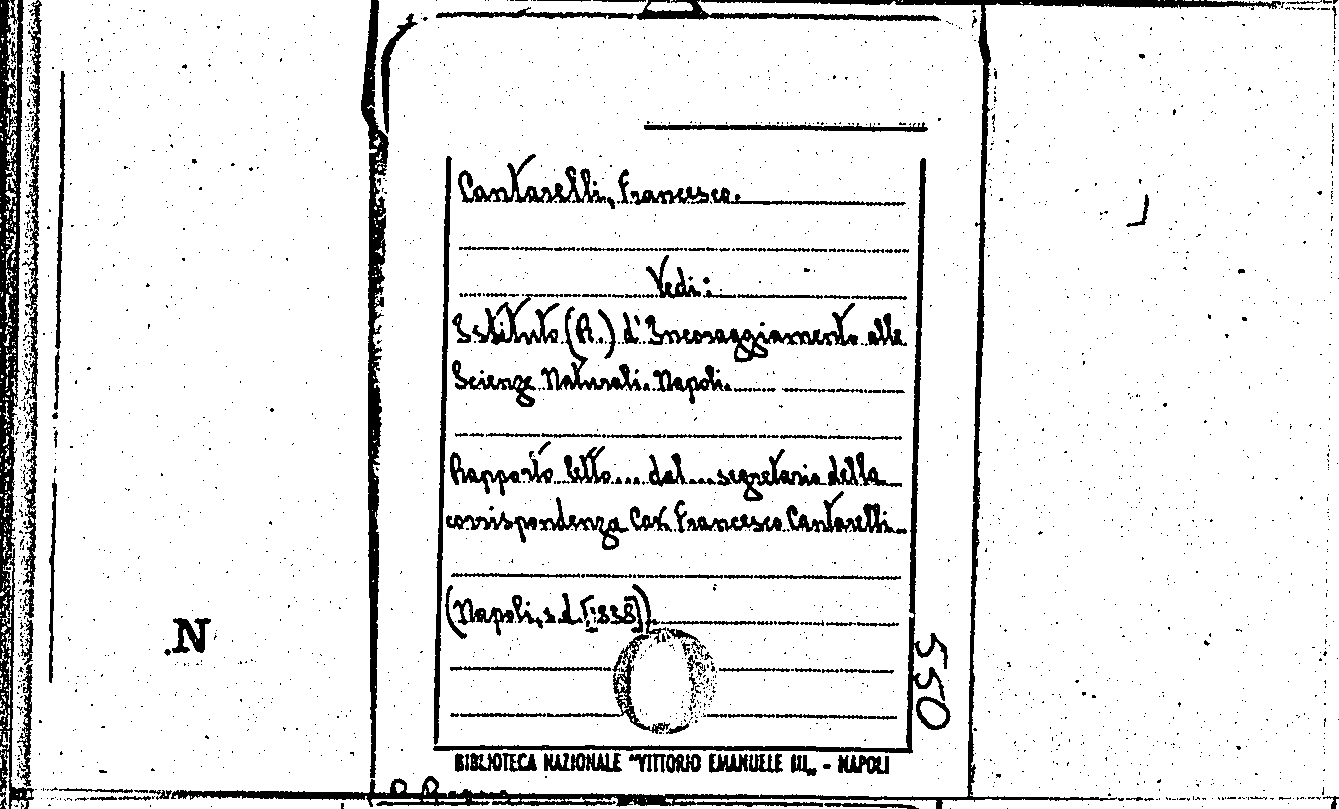 Cantarelli, Francesco.
Vedi:
Istituto (R.) d'Incoraggiamento alle
Scienze Naturali. Napoli.
Rapporto letto... dal... segretario della
corrispondenza Cav. Francesco Cantarelli...
(Napoli, s.d. [1838])
550
.N
BIBLIOTECA NAZIONALE "VITTORIO EMANUELE III„ - NAPOLI